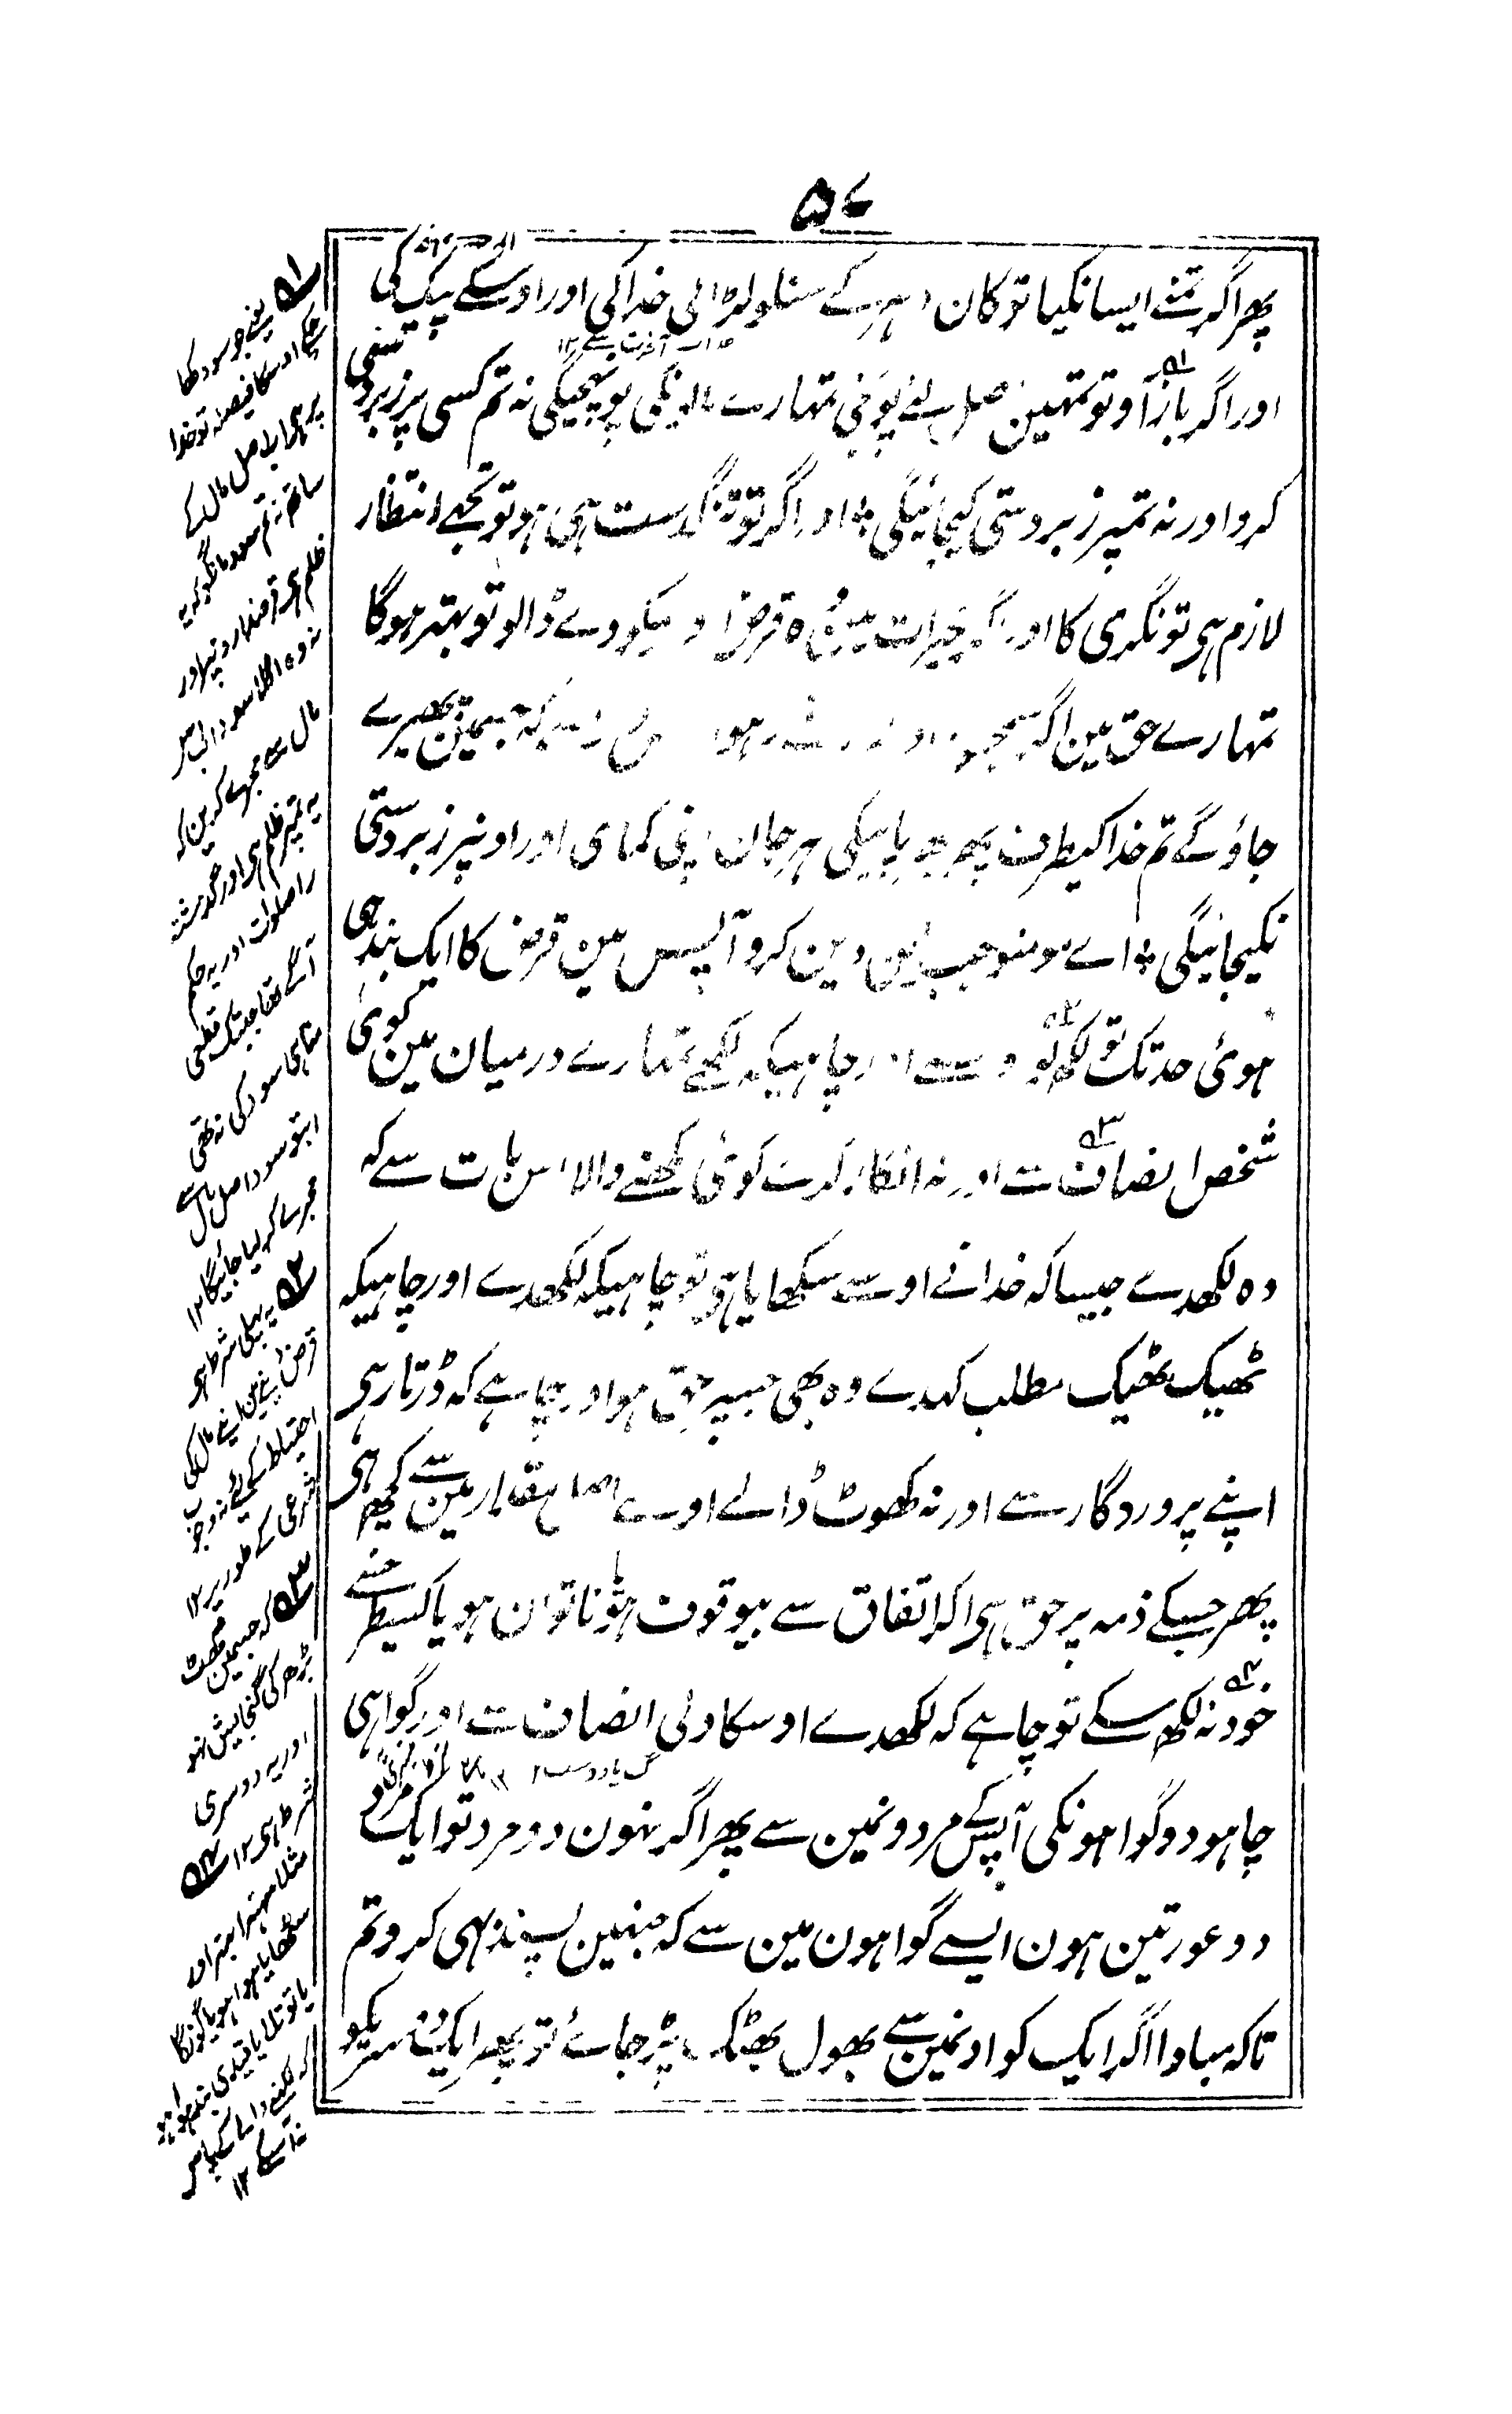 ۵۷
پھر اگر تمنے ایسا نکیا تو کان دہر کے سنلو لڑائی خدا کی اور اوسکے پیک کی
اور اگر باز آو تو تمہین اصل پونجی تمہارے مالونکی پہونچیگی نہ تم کسی پر زبردستی
کرو اور نہ تمپر زبردستی کیجائیگی اور اگر تو تنگدست ہی ہو تو تجھے انتظار
لازم ہی تونگری کا اور خیرات مین قرض دے ڈالو تو بہتر ہوگا
تمہارے حق مین اگر سمجھو اور جسمین پھیرے
جاؤ گے تم خدا کیطرف پھر پائیگی ہر جان اپنی کمائی اور اونپر زبردستی
نکیجائیگی اے مومنو جب لین دین کرو آپس مین قرض کا ایک بندھی
ہوئی حد تک تو لکھ لو اور چاہیکہ لکھے تمہارے درمیان مین کوئی
شخص انصاف سے اور نہ انکار کرے کوئی لکھنے والا اس بات سے کہ
وہ لکھدے جیسا کہ خدا نے اوسے سکھایا ہی تو چاہیکہ لکھدے اور چاہیکہ
ٹھیک ٹھیک مطلب کہدے وہ بھی جسپر حق ہو اور چاہے کہ ڈرتا رہی
اپنے پروردگار سے اور نہ کھوٹ ڈالے اوسے مقدار مین سے کچھ ہی
پھر جسکے ذمہ پر حق ہی اگر اتفاق سے بیوقوف ہو یا ناتوان ہو یا کسیطرحسے
خود نہ لکھ سکے تو چاہے کہ لکھدے اوسکا ولی انصاف سے اور گواہی
چاہو دو گواہونکی آپس کے مردونمین سے پھر اگر نہون دو مرد تو ایک مرد
دو عورتین ہون ایسے گواہون مین سے کہ جنہین پسند بہی کرو تم
تاکہ مبادا اگر ایک کو اونمین سے بھول بھٹک پڑ جائے تو پھر ایک دوسریکو
۱ یعنے جو سود کھا
چکے اوسکا فیصلہ تو خدا
پر ہی اب اصل مال کے
ساتھ نہ تم سود مانگو کہ یہ
ظلم ہی قرضدارونپر اور
نہ وہ اگلا سود اس
مال سے مجرے کرین کہ
یہ تمپر ظلم ہی اور گذشتہ
را صلوات اور یہ حکم
آگے تھا جبتک قطعی
مناہی سود کی نہ تھی
اب تو سود اصل مال سے
مجرے کر لیا جائیگا ۱۲
۲ یہ پہلی شرط ہی
قرض لینے مین اپنے مال کی
احتیاط کے لئے نہ وجوب
شرعی کے طور پر ۱۲
۳ کہ جسمین گھٹ
بڑھ کی گنجایش نہو
اور یہ دوسری
شرط ہی ۱۲ ۴
مثلا بہرا
سٹھیایا ہوا ہو یا گونگا
یا توتلا یا قیدی
کہ لکھنے والے کے پاس
نہ آسکے ۱۲